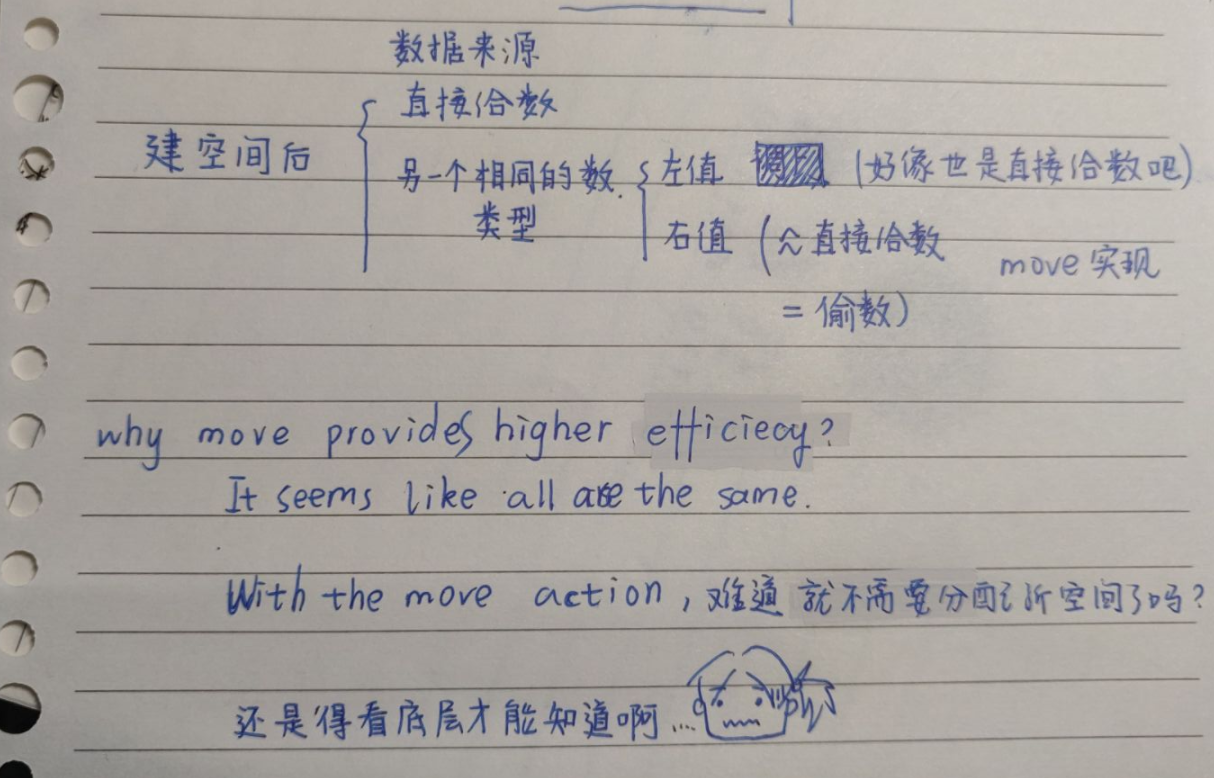 数据来源
直接给数
建空间后
另一个相同的数
类型
左值 (好像也是直接给数吧)
右值 (≈直接给数
move 实现
= 偷数)
why move provides higher efficiecy?
It seems like all are the same.
With the move action, 难道就不需要分配新空间了吗?
还是得看底层才能知道啊...